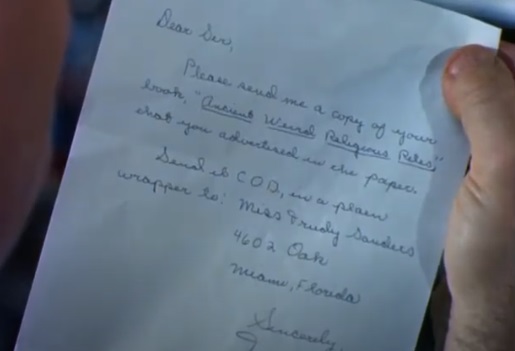 Dear Sir,
Please send me a copy of your
book, "Ancient Weird Religious Rites,"
that you advertised in the paper.
Send it C O D, in a plain
wrapper to: Miss Trudy Sanders
4602 Oak
Miami, Florida
Sincerely,